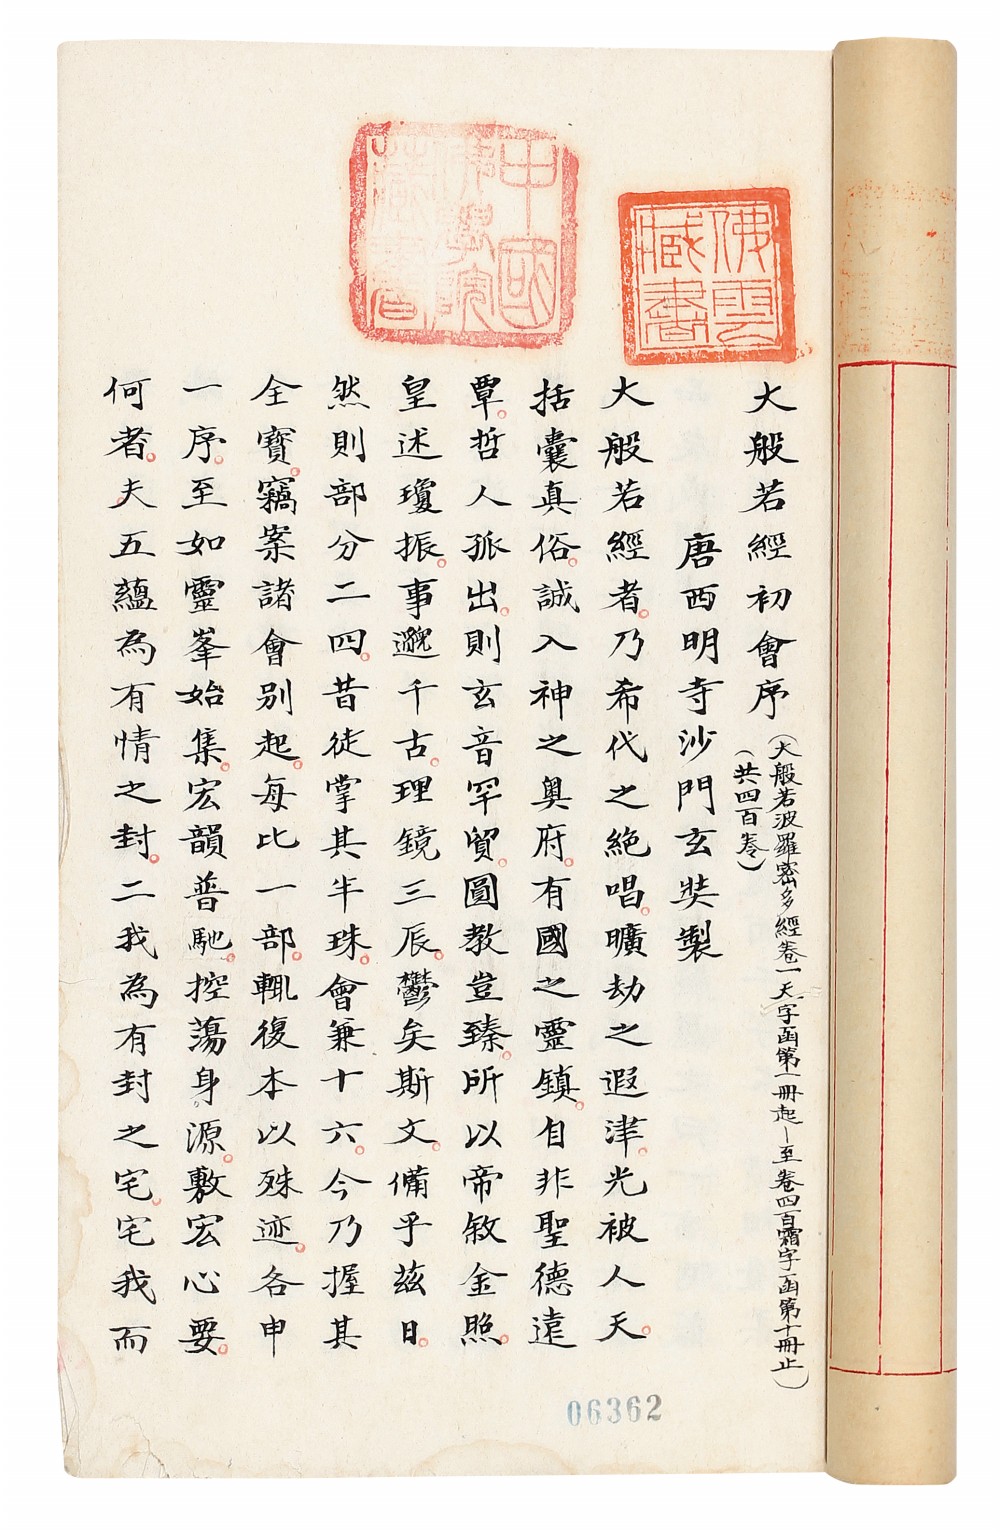 佛雲藏書
中國佛學院藏書
大般若經初會序
(大般若波羅密多經卷一天字函第一冊起—至卷四百霜字函第十冊止)
(共四百卷)
唐西明寺沙門玄奘製
大般若經者。乃希代之絕唱。曠劫之遐津。光被人天。
括囊真俗。誠入神之奧府。有國之靈鎮。自非聖德遠
覃。哲人孤出。則玄音罕貿。圓教豈臻。所以帝敘金照。
皇述瓊振。事邈千古。理鏡三辰。鬱矣斯文。備乎茲日。
然則部分二四。昔徒掌其半珠。會兼十六。今乃握其
全寶。竊案諸會別起。每比一部。輒復本以殊迹。各申
一序。至如靈峯始集。宏韻普馳。控蕩身源。敷宏心要。
何者。夫五蘊為有情之封。二我為有封之宅。宅我而
06362